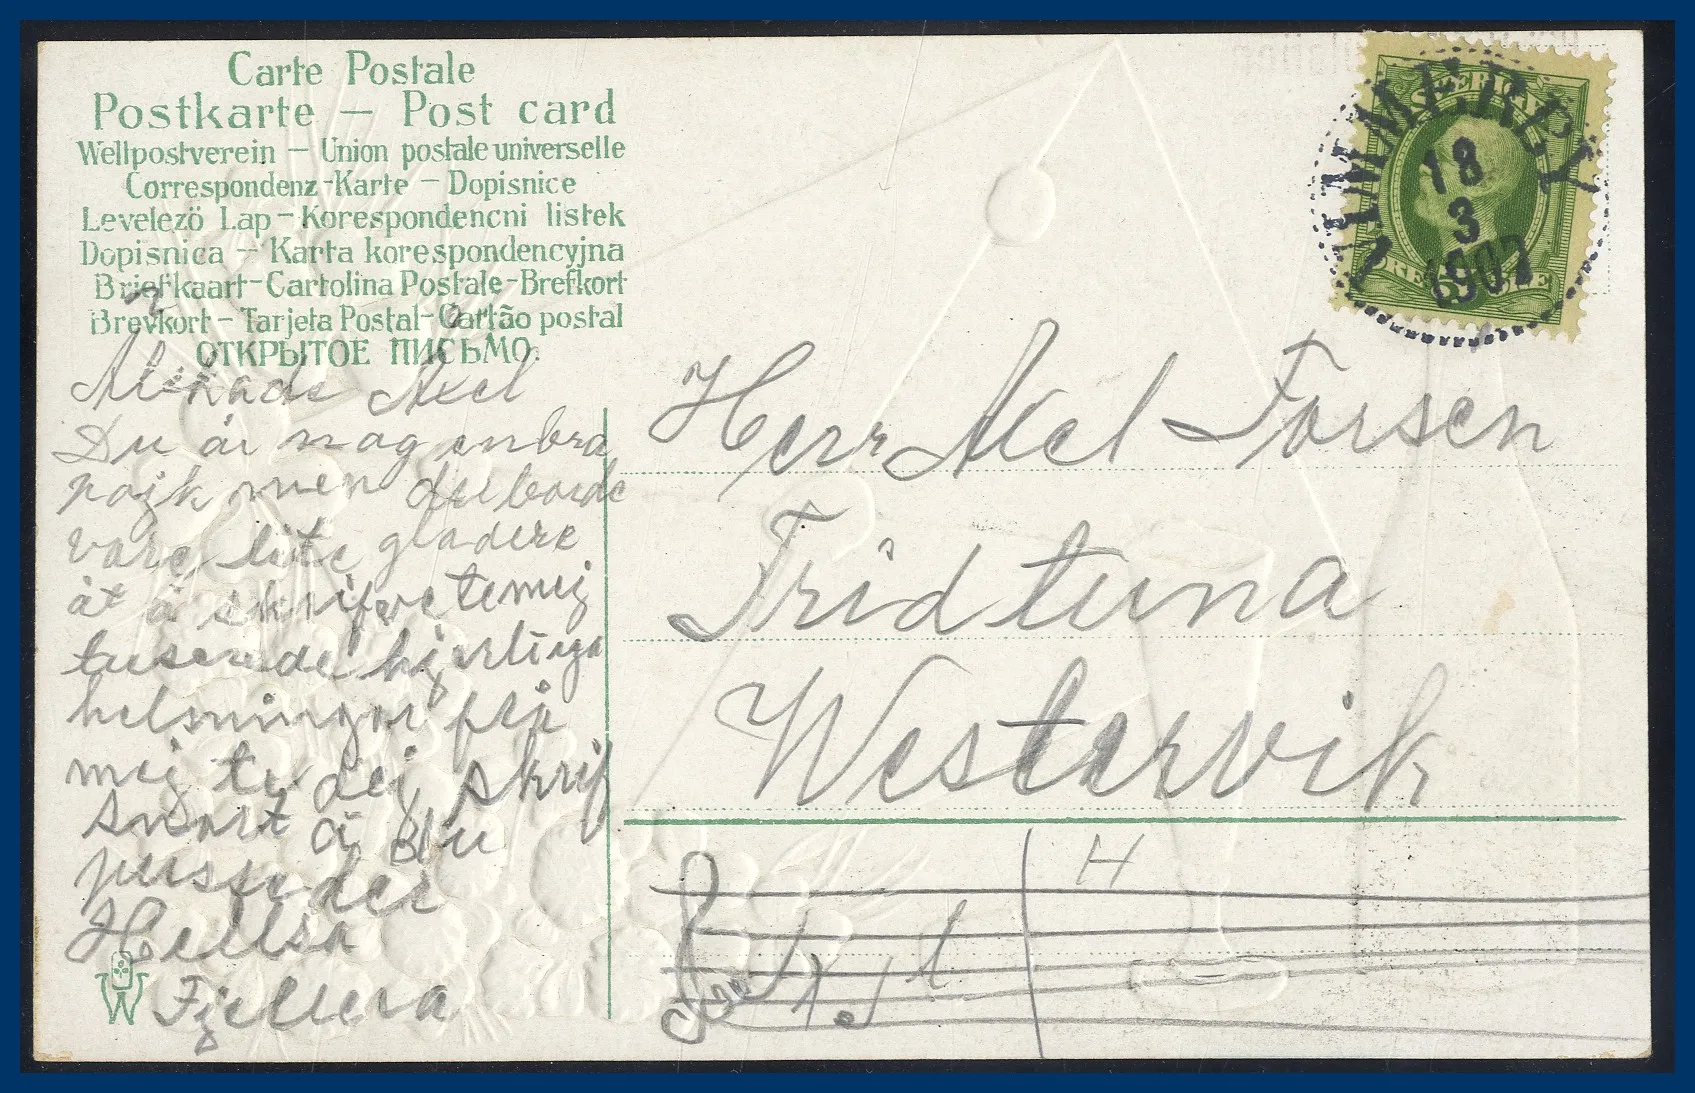 Carte Postale
Postkarte – Post card
Weltpostverein – Union postale universelle
Correspondenz-Karte – Dopisnice
Levelezö Lap – Korespondencni listek
Dopisnica – Karta korespondencyjna
Briefkaart – Cartolina Postale – Brefkort
Brevkort – Tarjeta Postal – Cartão postal
ОТКРЫТОЕ ПИСЬМО.
Älskade Axel
Du är nog en bra
pojk men du borde
vare lite gladere
åt å skrifve te mej
tusende hjertliga
helsningar från
mej te dej skrif
snart å du
Helsa
Fjellera
ZIMMERBY
18
3
1907
SVERIGE
Herr Axel Forsen
Fridtuna
Westervik
H